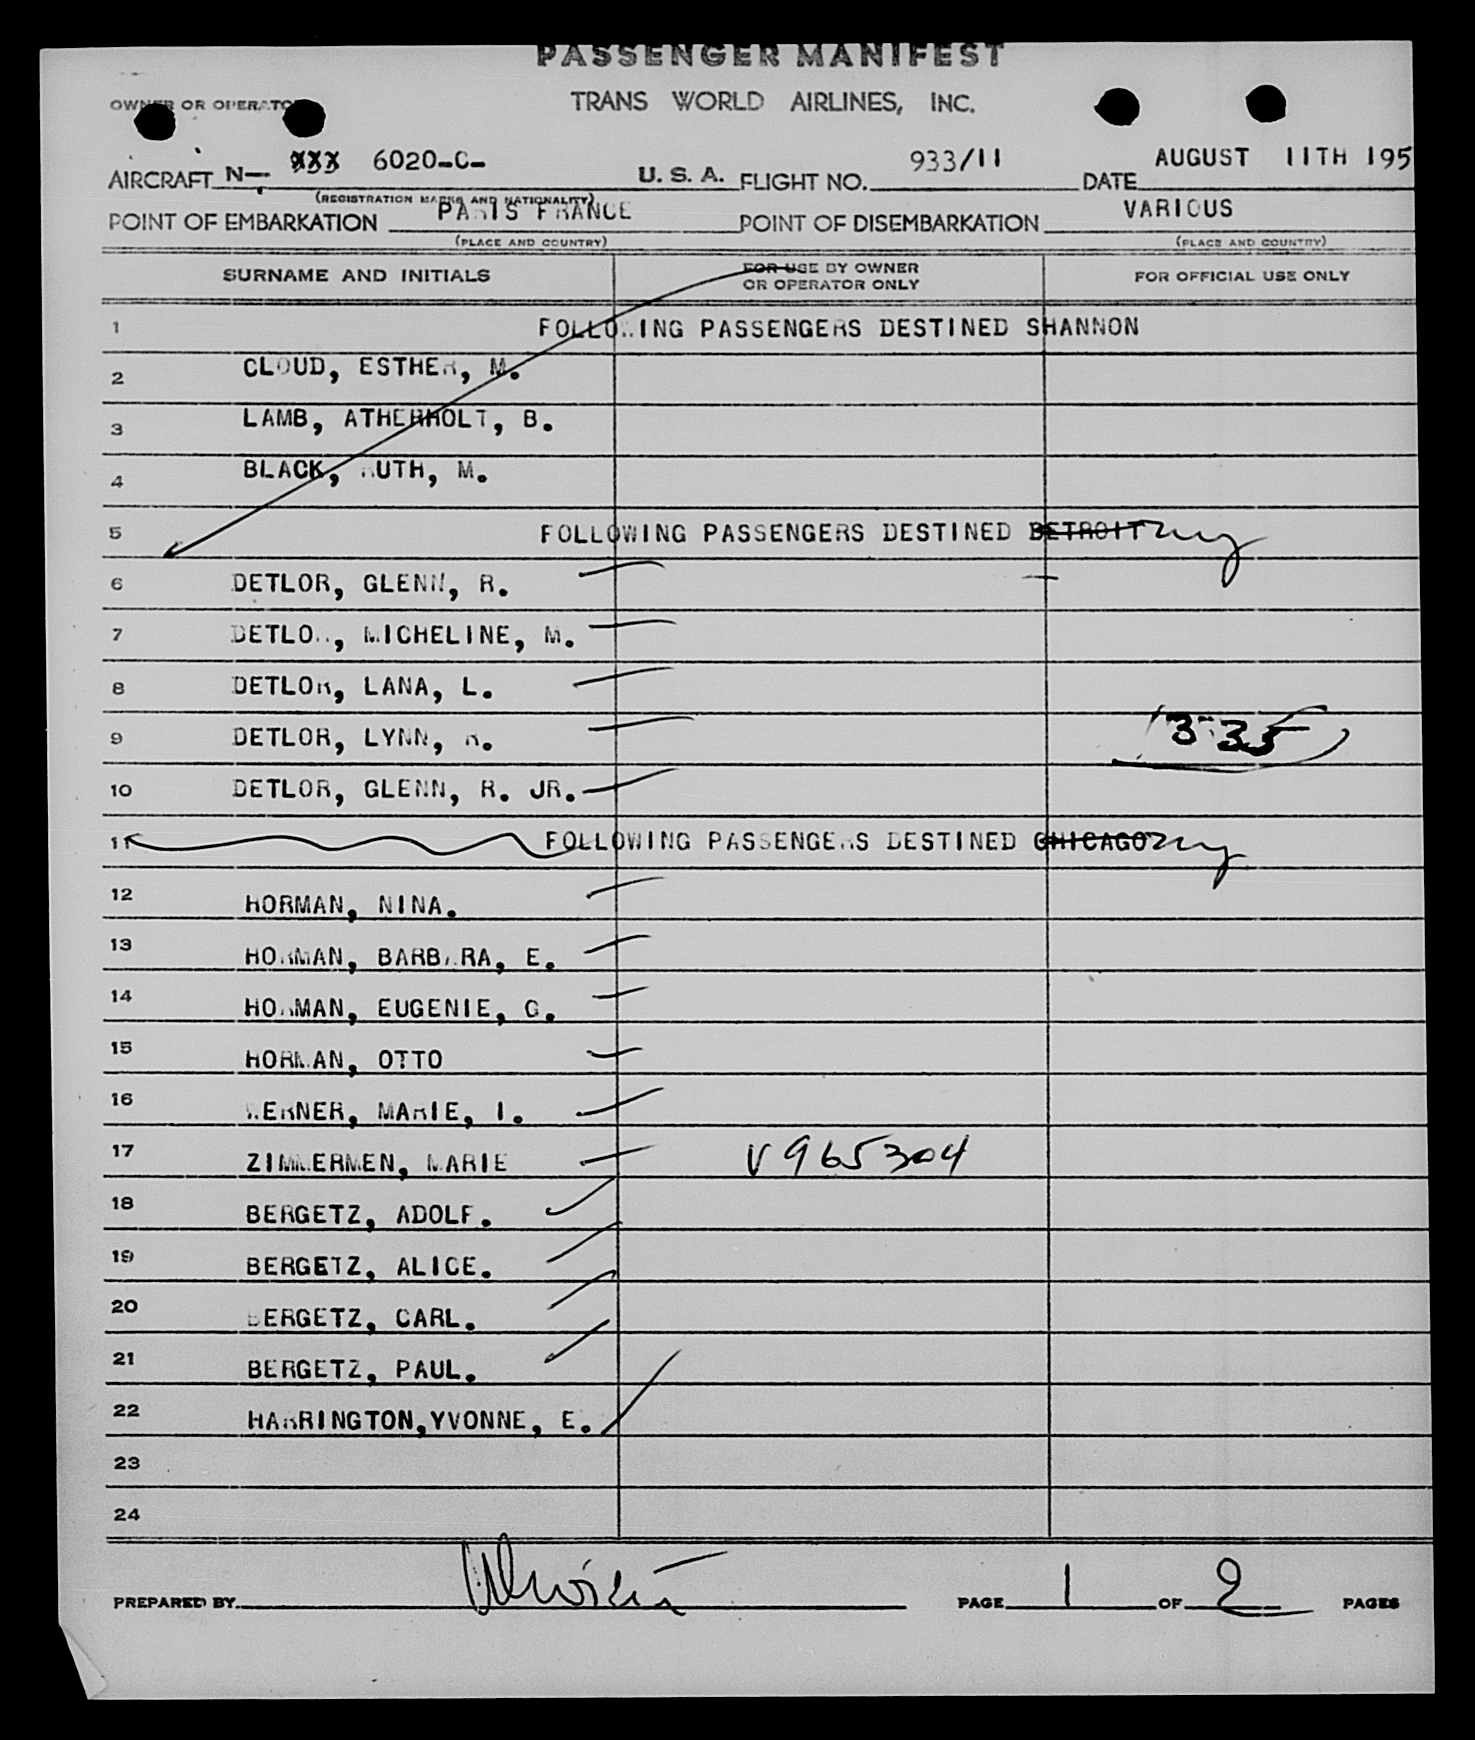 PASSENGER MANIFEST
OWNER OR OPERATOR TRANS WORLD AIRLINES, INC.
AIRCRAFT N- XXX 6020-C- U. S. A. FLIGHT NO. 933/11 DATE AUGUST 11TH 195
(REGISTRATION MARKS AND NATIONALITY)
POINT OF EMBARKATION PARIS FRANCE POINT OF DISEMBARKATION VARIOUS
(PLACE AND COUNTRY) (PLACE AND COUNTRY)
SURNAME AND INITIALS FOR USE BY OWNER OR OPERATOR ONLY FOR OFFICIAL USE ONLY
1 FOLLOWING PASSENGERS DESTINED SHANNON
2 CLOUD, ESTHER, M.
3 LAMB, ATHERHOLT, B.
4 BLACK, RUTH, M.
5 FOLLOWING PASSENGERS DESTINED DETROIT ny
6 DETLOR, GLENN, R.
7 DETLOR, MICHELINE, M.
8 DETLOR, LANA, L.
9 DETLOR, LYNN, R. 335
10 DETLOR, GLENN, R. JR.
11 FOLLOWING PASSENGERS DESTINED CHICAGO ny
12 HORMAN, NINA.
13 HORMAN, BARBARA, E.
14 HORMAN, EUGENIE, G.
15 HORMAN, OTTO
16 WERNER, MARIE, I.
17 ZIMMERMEN, MARIE V965304
18 BERGETZ, ADOLF.
19 BERGETZ, ALICE.
20 BERGETZ, CARL.
21 BERGETZ, PAUL.
22 HARRINGTON,YVONNE, E.
23
24
PREPARED BY PAGE 1 OF 2 PAGES